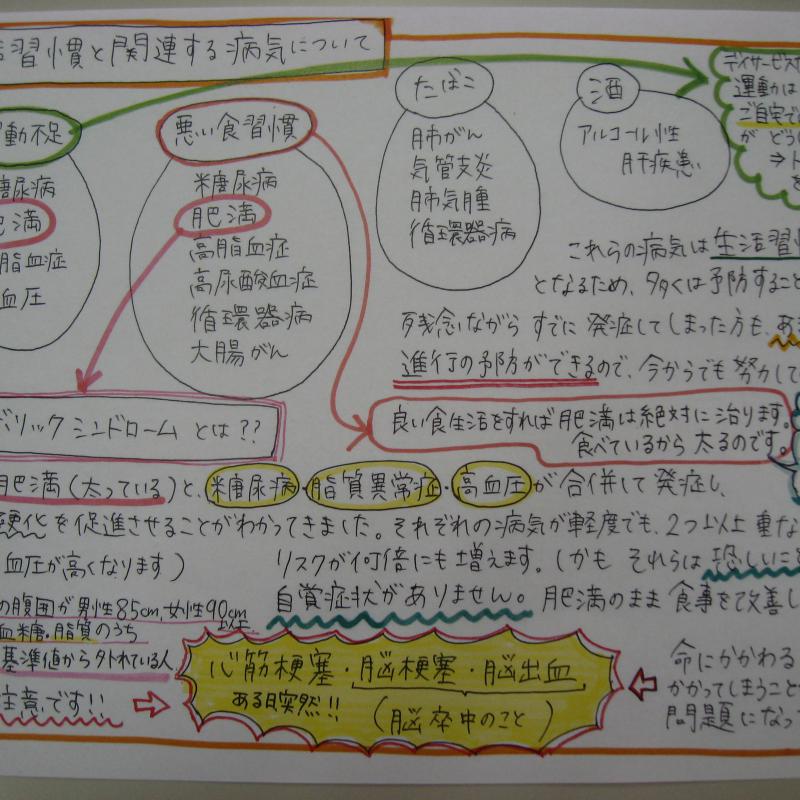 習慣と関連する病気について
動不足
糖尿病
肥満
脂血症
血圧
悪い食習慣
糖尿病
肥満
高脂血症
高尿酸血症
循環器病
大腸がん
たばこ
肺がん
気管支炎
肺気腫
循環器病
酒
アルコール性
肝疾患
デイサービス
運動は
ご自宅で
が どう
⇒
を
これらの病気は生活習慣
となるため、多くは予防すること
残念ながら すでに 発症してしまった方も、
進行の予防ができるので、今からでも 努力して
良い食生活をすれば 肥満は絶対に 治ります。
食べているから 太るのです。
バリック シンドローム とは??
肥満(太っている)と、糖尿病・脂質異常症・高血圧が 合併して 発症し、
硬化を促進させることがわかってきました。それぞれの病気が軽度でも、2つ以上 重な
血圧が高くなります)
リスクが何倍にも増えます。しかも それらは 恐しいこと
自賞症状がありません。肥満のまま 食事を改善し
の腹囲が男性85cm,女性90cm
以上
血糖・脂質のうち
基準値から外れている人
注意です!!
心筋梗塞・脳梗塞・脳出血
ある日突然!!
(脳卒中のこと)
命にかかわる
かかってしまうこと
問題になって